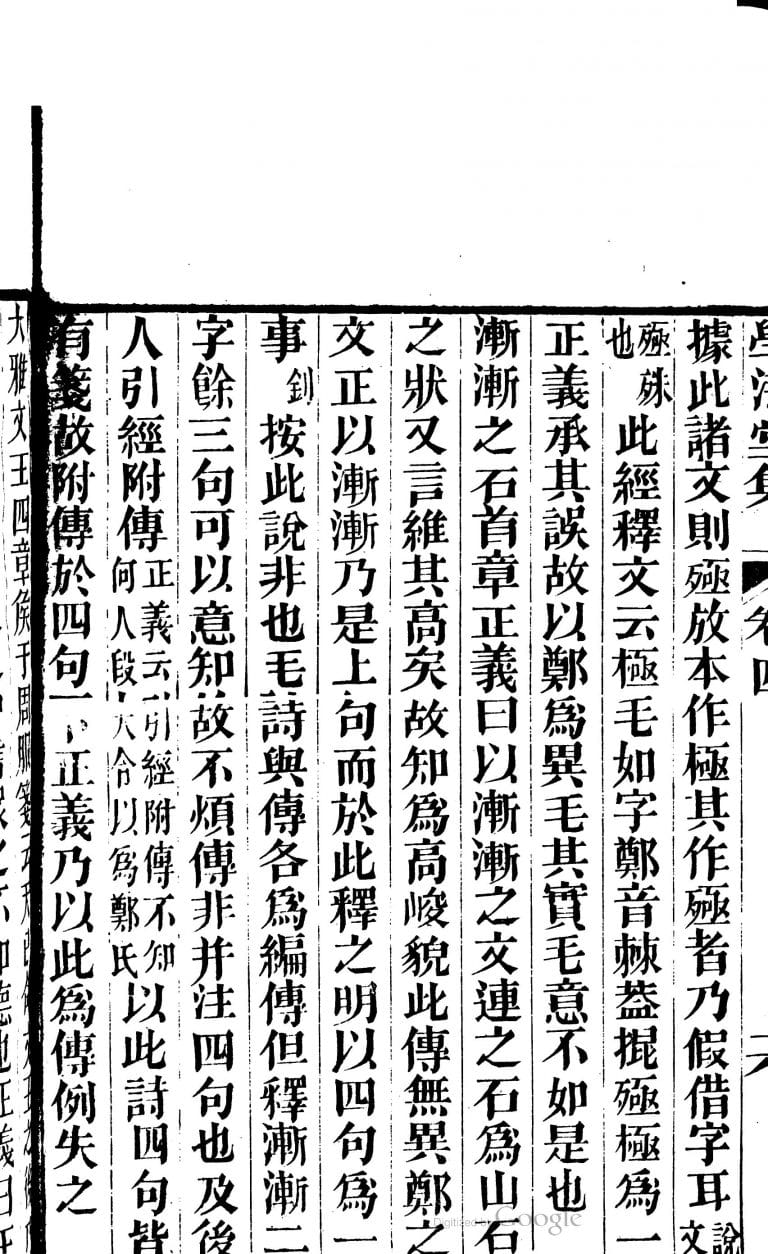 學海堂集 卷四
據此諸文則殛放本作極其作殛者乃假借字耳說文
殛殊也此經釋文云極毛如字鄭音棘葢掍殛極爲一
正義承其誤故以鄭爲異毛其實毛意不如是也
漸漸之石首章正義曰以漸漸之文連之石爲山石
之狀又言維其高矣故知爲高峻貌此傳無異鄭之
文正以漸漸乃是上句而於此釋之明以四句爲一
事釗按此說非也毛詩與傳各爲編傳但釋漸漸二
字餘三句可以意知故不煩傳非并注四句也及後
人引經附傳正義云引經附傳不知何人段大令以爲鄭氏以此詩四句皆
有箋故附傳於四句下正義乃以此爲傳例失之
大雅文王四章侯于周服箋
Digitized by Google